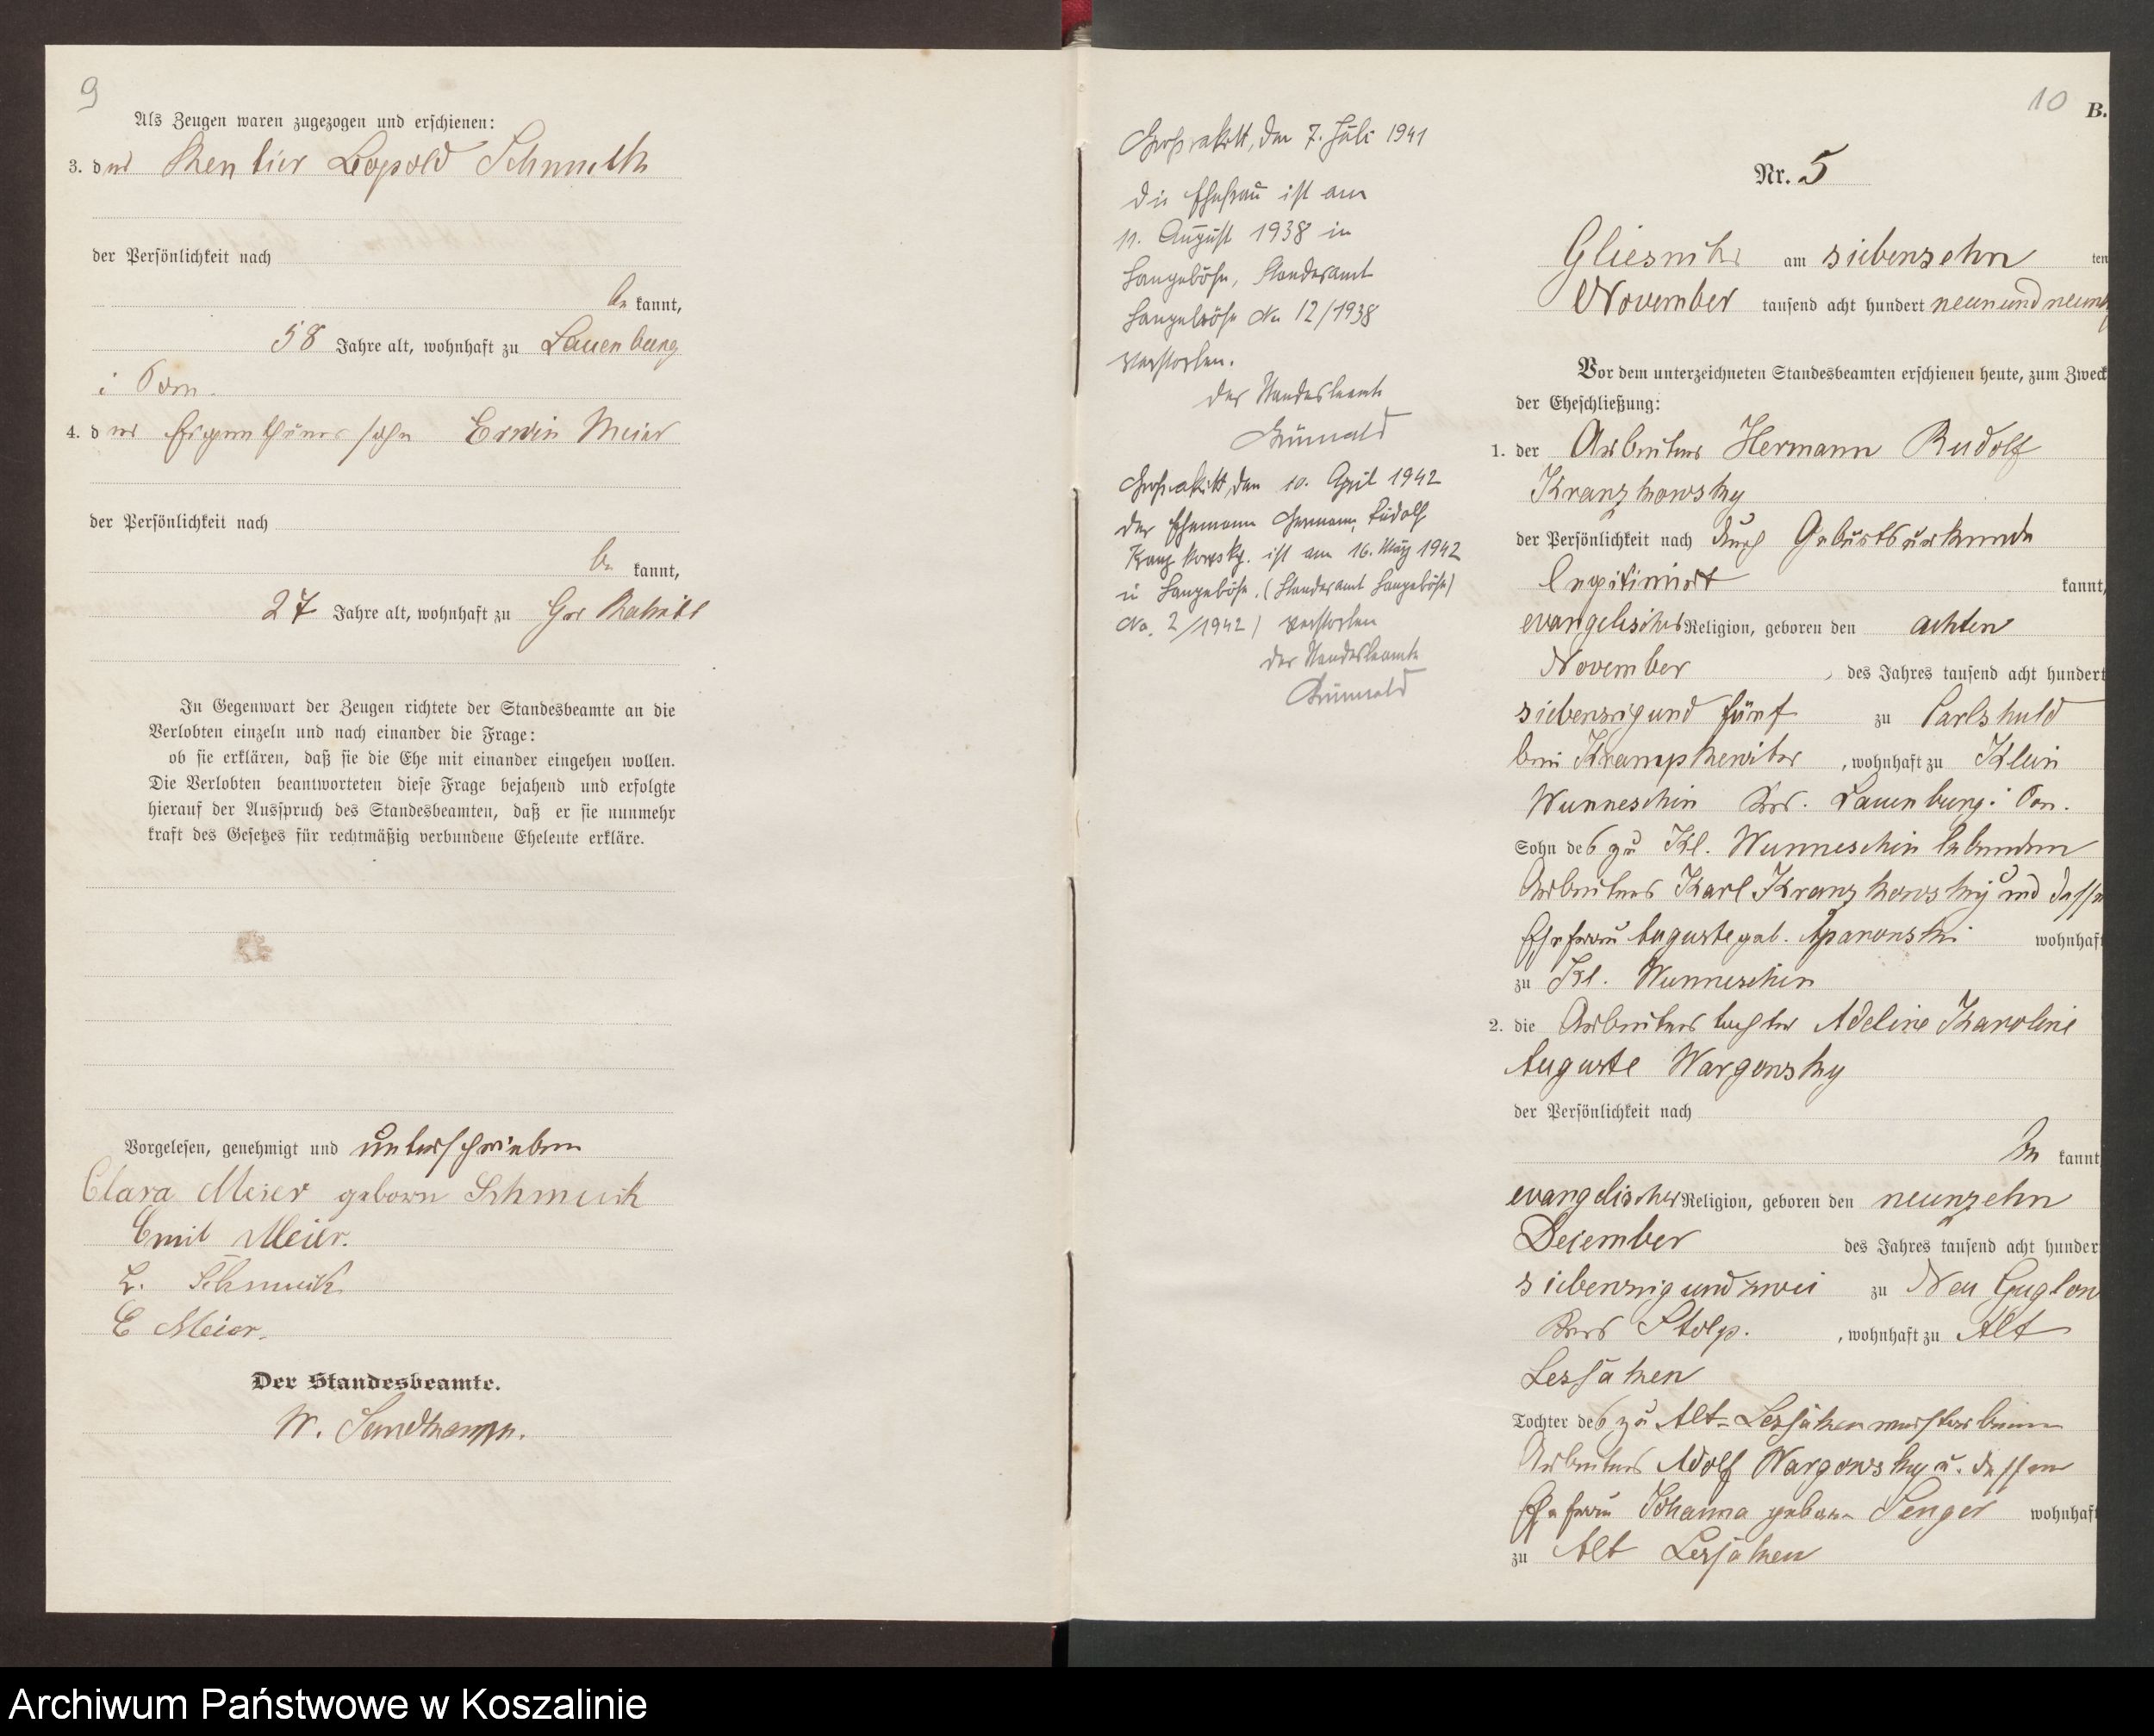 9
Als Zeugen waren zugezogen und erschienen:
3. der Rentier Leopold Schmuck
der Persönlichkeit nach
be kannt,
58 Jahre alt, wohnhaft zu Lauenburg
i Pom.
4. der Eigenthümersohn Erwin Meier
der Persönlichkeit nach
be kannt,
27 Jahre alt, wohnhaft zu Gr Rakitt
In Gegenwart der Zeugen richtete der Standesbeamte an die
Verlobten einzeln und nach einander die Frage:
ob sie erklären, daß sie die Ehe mit einander eingehen wollen.
Die Verlobten beantworteten diese Frage bejahend und erfolgte
hierauf der Ausspruch des Standesbeamten, daß er sie nunmehr
kraft des Gesetzes für rechtmäßig verbundene Eheleute erkläre.
Vorgelesen, genehmigt und unterschrieben
Clara Meier geboren Schmuck
Emil Meier.
L. Schmuck
E Meier.
Der Standesbeamte.
W. Sandkamp.
Großrakitt, den 7. Juli 1941
Die Ehefrau ist am
11. August 1938 in
Langeböse, Standesamt
Langeböse No 12/1938
verstorben.
Der Standesbeamte
Grünwald
Großrakitt, den 10. April 1942
Der Ehemann Hermann, Rudolf
ist am 16. März 1942
in Langeböse. (Standesamt Langeböse)
No. 2/1942) verstorben
Der Standesbeamte
Grünwald
10 B.
Nr. 5
Gliesnitz am siebenzehn ten
November tausend acht hundert neunundneunz
Vor dem unterzeichneten Standesbeamten erschienen heute, zum Zweck
der Eheschließung:
1. der Arbeiter Hermann Rudolf
Kranzkowsky
der Persönlichkeit nach durch Geburtsurkunde
legitimirt kannt,
evangelischer Religion, geboren den achten
November , des Jahres tausend acht hundert
siebenzigund fünf zu Carlshuld
bei Krampkewitz , wohnhaft zu Klein
Wunneschin Krs. Lauenburg i Pom.
Sohn des zu Kl. Wunneschin lebenden
Arbeiters Karl Kranzkowsky und dessen
Ehefrau Auguste geb. wohnhaft
zu Kl. Wunneschin
2. die Arbeiterstochter Adeline Karoline
Auguste Wargowsky
der Persönlichkeit nach
be kannt
evangelischer Religion, geboren den neunzehn
Dezember des Jahres tausend acht hunder
siebenzigundzwei zu Neu Guglow
Kreis Stolp. , wohnhaft zu Alt
Lessaken
Tochter des zu Alt-Lessaken verstorbenen
Arbeiters Adolf Wargowsky u. dessen
Ehefrau Johanna geboren Senger wohnhaft
zu Alt Lessaken
Archiwum Państwowe w Koszalinie